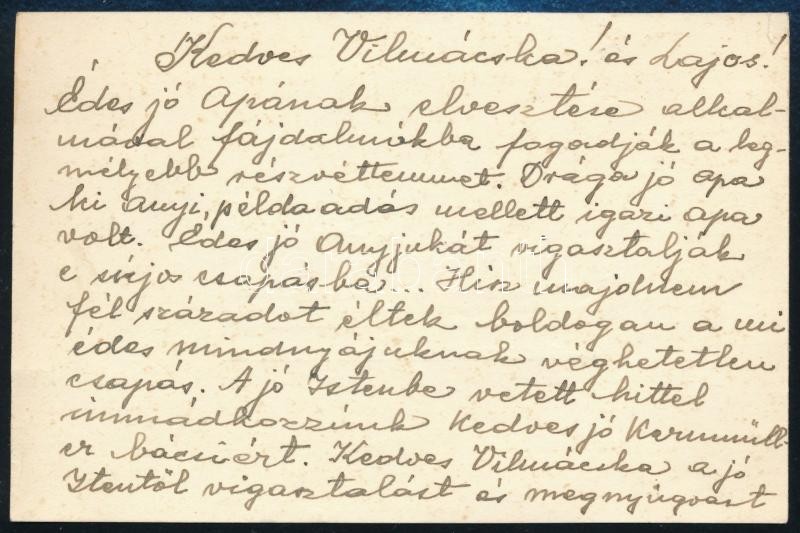 Kedves Vilmácska! és Lajos!
Édes jó Apának elvesztése alkal-
mával fájdalmukba fogadják a leg-
mélyebb részvétemmet. Drága jó apa
ki anyi, példaadás mellett igazi apa
volt. Édes jó Anyjukát vigasztalják
e sújos csapásba... Hisz majdnem
fél századot éltek boldogan a mi
édes mindnyájuknak véghetetlen
csapás. A jó Istenbe vetett hittel
immádkozzunk Kedves jó Kernmüll-
er bácsiért. Kedves Vilmácska a jó
Istentöl vigasztalást és megnyugvást